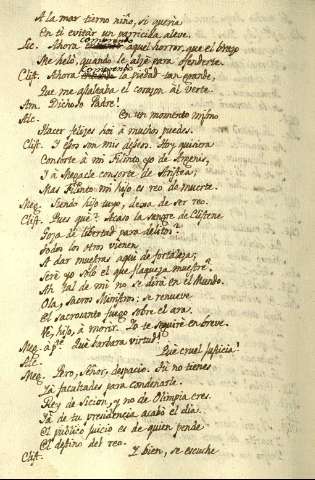 A la mar tierno niño, si queria
En ti evitar un parricida aleve.
Lic. Ahora comprendo aquel horror, que el brazo
Me heló, quando le alzé para ofenderte.
Clist. Ahora comprendo la piedad tan grande,
Que me asalteaba el corazon al verte.
Am. Dichoso Padre!
Alc. En un momento mismo
Hacer felizes hoi à muchos puedes.
Clist. I esos son mis deseos. Hoy quisiera
Consorte à mi Filinto, yo de Argenis,
I à Megacle consorte de Aristea;
Mas Filinto mi hijo es reo de muerte.
Meg. Siendo hijo tuyo, dexa de ser reo.
Clist. Pues què? Acaso la sangre de Clistene
Goza de libertad para delitos?
Todos los otros vienen
A dar muestras aqui de fortaleza;
Seré yo solo el que flaqueza muestre?
Ah! tal de mi no se dirá en el Mundo.
Ola, sacros Ministros: se renueve
El sacrosanto fuego sobre el ara.
Ve, hijo, à morir. Io te seguiré en breve.
Meg. à pte. Què barbara virtud!
Alc. Què cruel justicia!
Meg. Pero, Señor, despacio. Tú no tienes
Ya facultades para condenarle.
Rey de Sicion, y no de Olimpia eres.
Iá de tu presidencia acabò el dia.
Al publico juicio es de quien pende
El destino del reo.
Clist. I bien, se escuche